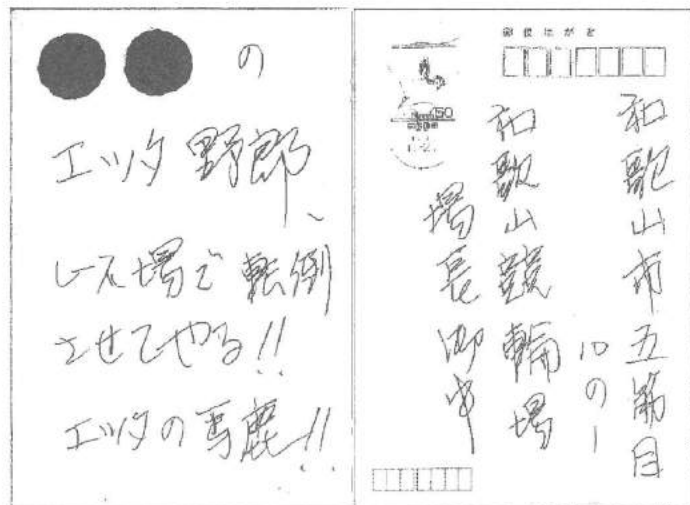 の
エッタ野郎、
レース場で転倒
させてやる!!
エッタの馬鹿!!
郵便はがき
50
和歌山市五筋目
10の1
和歌山競輪場
場長御中